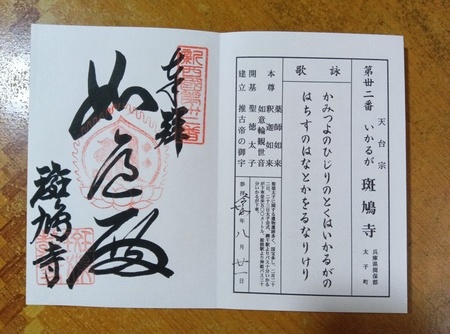 第卅二番
天台宗
いかるが 斑鳩寺
兵庫県揖保郡
太子町
詠歌
かみつよのひじりのとくはいかるがの
はちすのはなとかをるなりけり
本尊 薬師如来
釈迦如来
如意輪観世音
開基 聖徳太子
建立 推古帝の御宇
年 八月 廿一
奉拝
新西國第卅二番
如意殿
斑鳩寺